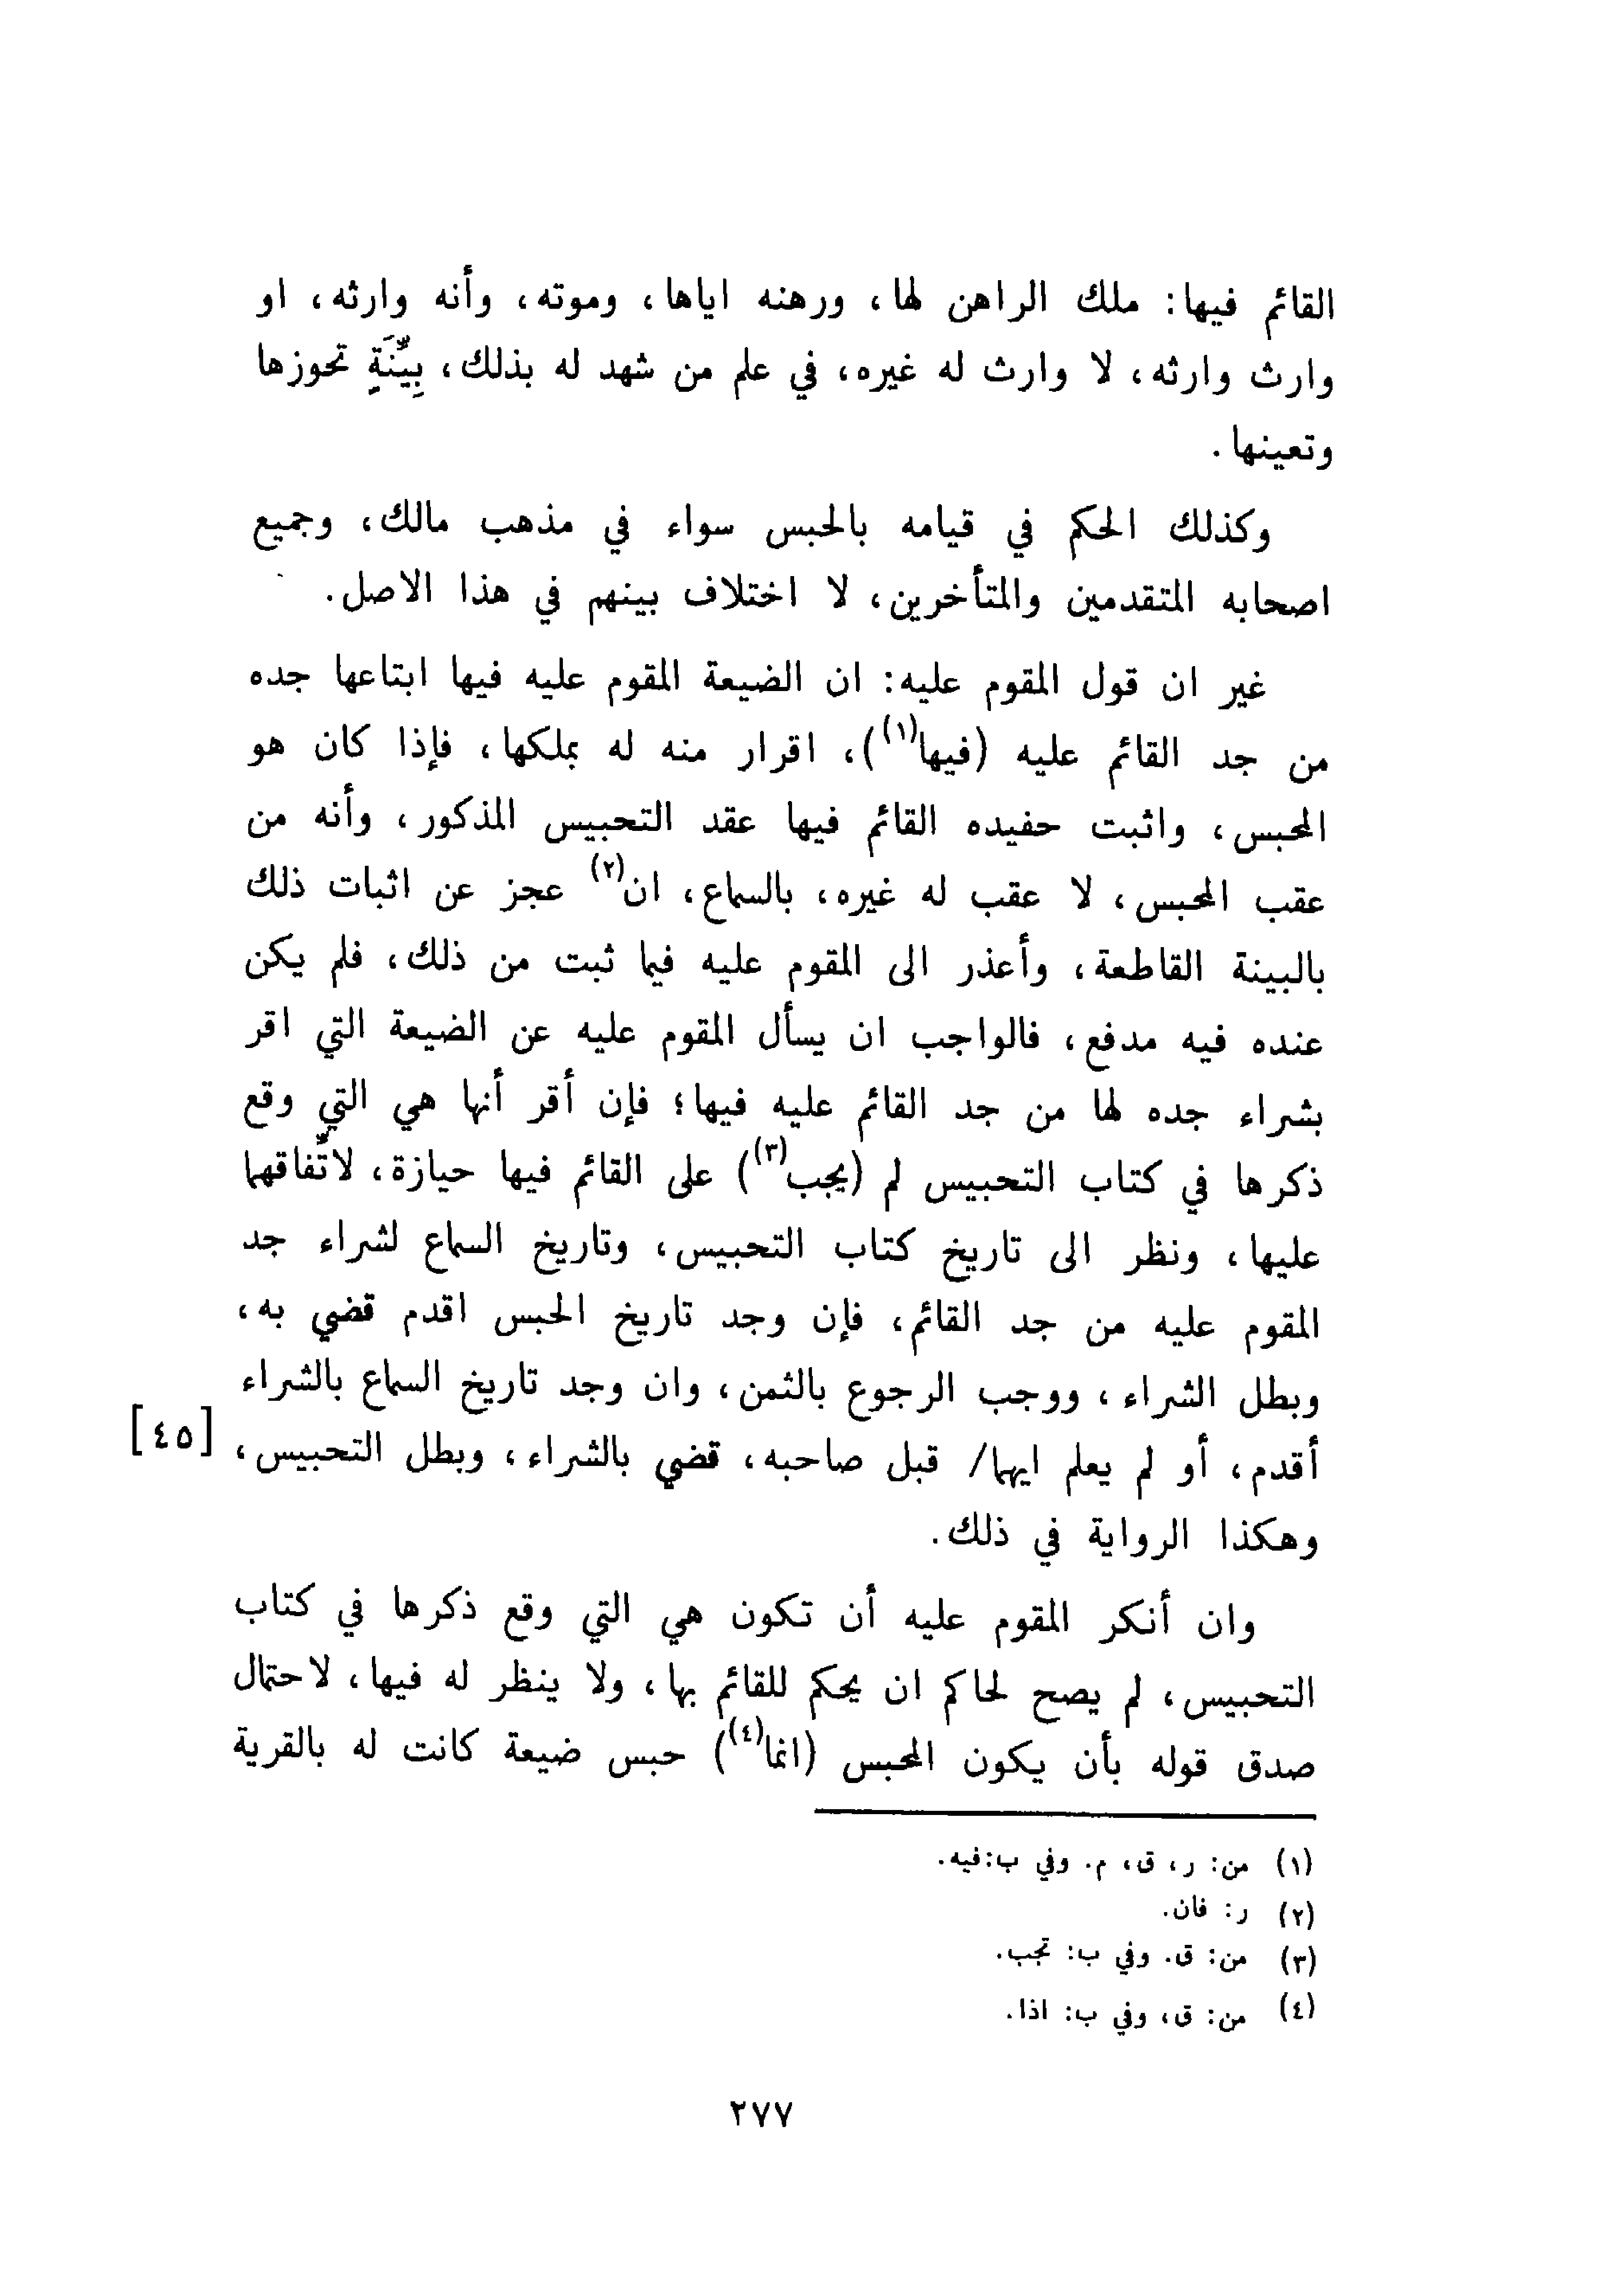 القائم فيها: ملك الراهن لها، ورهنه اياها، وموته، وأنه وارثه، او
وارث وارثه، لا وارث له غيره، في علم من شهد له بذلك، بِبيِّنَةٍ تحوزها
وتعينها.
وكذلك الحكم في قيامه بالحبس سواء في مذهب مالك، وجميع
اصحابه المتقدمين والمتأخرين، لا اختلاف بينهم في هذا الاصل.
غير ان قول المقوم عليه: ان الضيعة المقوم عليه فيها ابتاعها جده
من جد القائم عليه (فيها(١))، اقرار منه له بملكها، فإذا كان هو
المحبس، واثبت حفيده القائم فيها عقد التحبيس المذكور، وأنه من
عقب المحبس، لا عقب له غيره، بالسماع، ان(٢) عجز عن اثبات ذلك
بالبينة القاطعة، وأعذر الى المقوم عليه فيما ثبت من ذلك، فلم يكن
عنده فيه مدفع، فالواجب ان يسأل المقوم عليه عن الضيعة التي اقر
بشراء جده لها من جد القائم عليه فيها؛ فإن أقر أنها هي التي وقع
ذكرها في كتاب التحبيس لم (يجب(٣)) على القائم فيها حيازة، لاتّفاقهما
عليها، ونظر الى تاريخ كتاب التحبيس، وتاريخ السماع لشراء جد
المقوم عليه من جد القائم، فإن وجد تاريخ الحبس اقدم قضي به،
وبطل الشراء، ووجب الرجوع بالثمن، وان وجد تاريخ السماع بالشراء
أقدم، أو لم يعلم ايهما/ قبل صاحبه، قضي بالشراء، وبطل التحبيس، [٤٥]
وهكذا الرواية في ذلك.
وان أنكر المقوم عليه أن تكون هي التي وقع ذكرها في كتاب
التحبيس، لم يصح لحاكم ان يحكم للقائم بها، ولا ينظر له فيها، لاحتمال
صدق قوله بأن يكون المحبس (انما(٤)) حبس ضيعة كانت له بالقرية
(١) من: ر، ق، م. وفي ب:فيه.
(٢) ر: فان.
(٣) من: ق. وفي ب: تجب.
(٤) من: ق، وفي ب: اذا.
٢٧٧